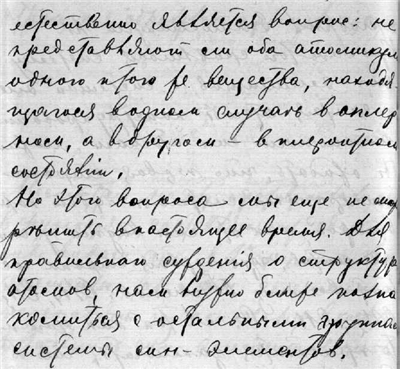 естественно является вопрос: не
представляют ли оба атома
одного и того же вещества, находя-
щагося в одном случаѣ в
ном, а в другом – в
состоянiи.
Но этого вопроса мы еще не
рѣшить в настоящее время. Для
правильного суждения о структур
атомов, нам нужно ближе позна
комиться с остальными группам
системы син-элементов.